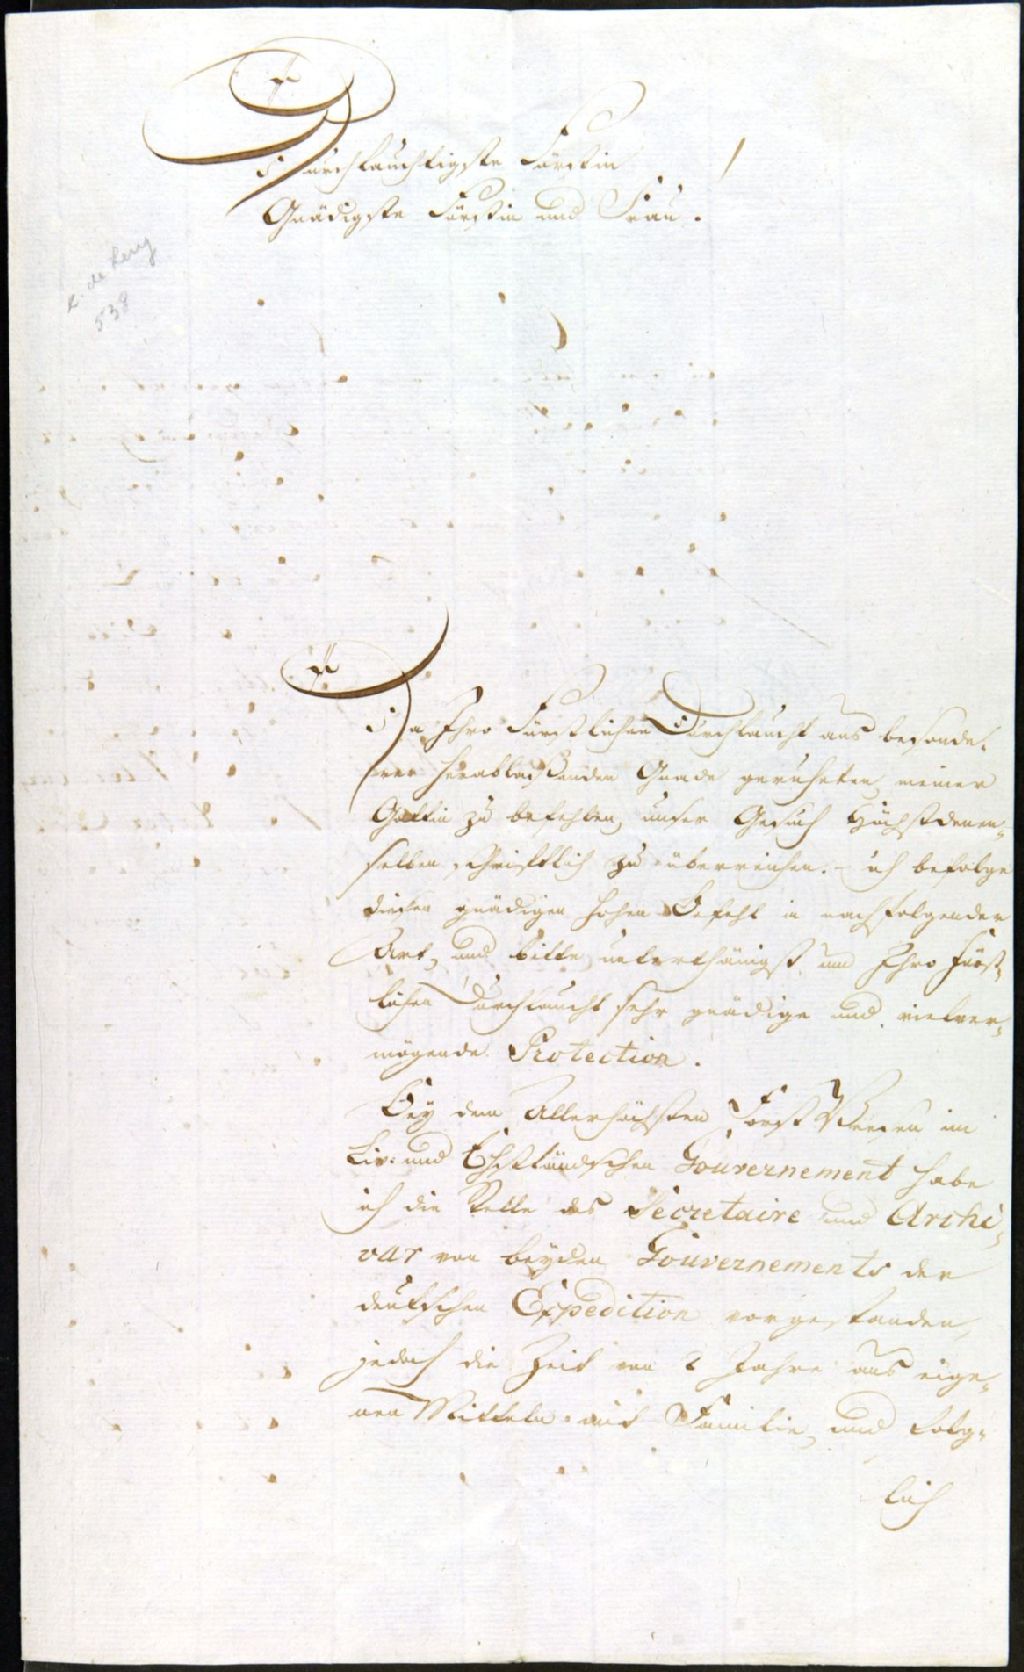 Durchlauchtigste Fürstin!
Gnädigste Fürstin und Frau.
538
Da Ihro Fürstlichen Durchlaucht aus besonde-
rer herablaßenden Gnade geruheten, meiner
Gattin zu befehlen, unser Gesuch Höchstdenen-
selben schriftlich zu überreichen. ich befolge
diesen gnädigen hohen Befehl in nachfolgender
Art, und bitte unterthänigst um Ihro Fürst-
lichen Durchlaucht sehr gnädige und vielver-
mögende Protection.
Bey dem Allerhöchsten Forst Weesen im
Liv: und Ehstländschen Gouvernement habe
ich die Stelle des Secretaire und Archi-
var von beyden Gouvernements der
deutschen Expedition vorgestanden,
jedoch die Zeit von 2 Jahre aus eige-
nen Mitteln mit Familie, und folg-
lich